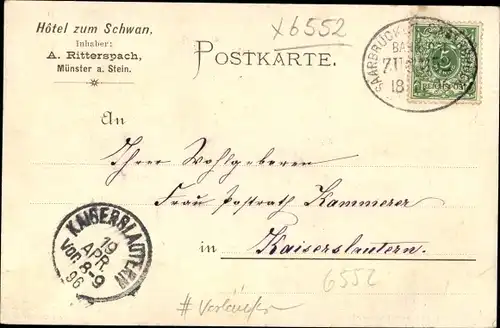 Hôtel zum Schwan,
Inhaber:
A. Ritterspach,
Münster a. Stein.
x6552
POSTKARTE.
SAARBRÜCKEN
BAHNPOST
ZUG
18
96
An
Ihrer Wohlgeboren
Frau Postrath Kammerer
in Kaiserslautern.
KAISERSLAUTERN
19
APR.
Vor. 8-9
96
6552